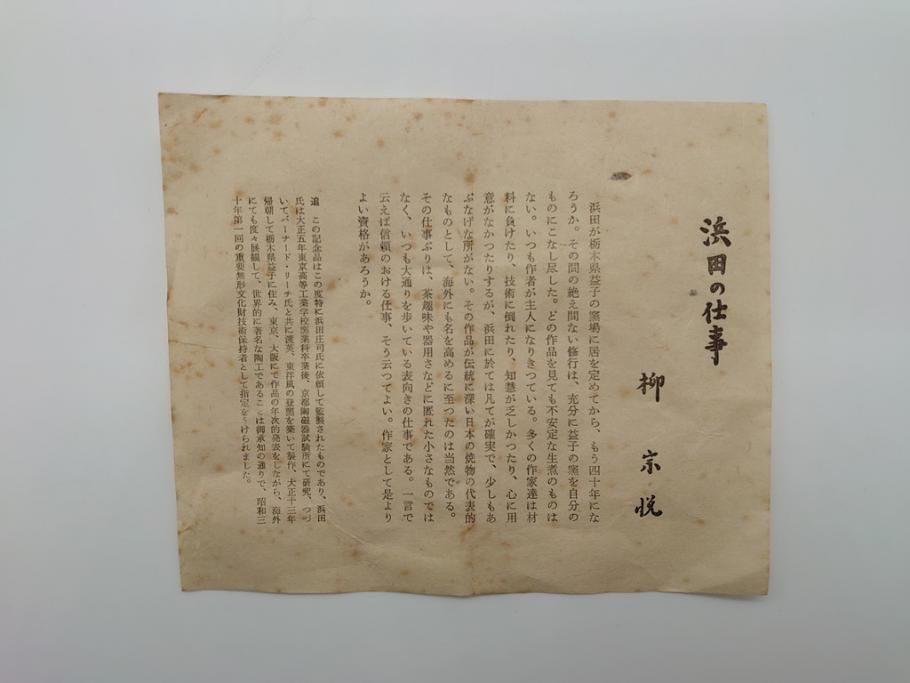 浜田の仕事
柳宗悦
浜田が栃木県益子の窯場に居を定めてから、もう四十年にな
ろうか。その間の絶え間ない修行は、充分に益子の窯を自分の
ものにこなし尽した。どの作品を見ても不安定な生煮のものは
ない。いつも作者が主人になりきつている。多くの作家達は材
料に負けたり、技術に倒れたり、知慧が乏しかつたり、心に用
意がなかつたりするが、浜田に於ては凡てが確実で、少しもあ
ぶなげな所がない。その作品が伝統に深い日本の焼物の代表的
なものとして、海外にも名を高めるに至つたのは当然である。
その仕事ぶりは、茶趣味や器用さなどに匿れた小さなものでは
なく、いつも大通りを歩いている表向きの仕事である。一言で
云えば信頼のおける仕事、そう云つてよい。作家として是より
よい資格があろうか。
追 この記念品はこの度特に浜田庄司氏に依頼して監製されたものであり、浜田
氏は大正五年東京高等工業学校窯業科卒業後、京都陶磁器試験所にて研究、つづ
いてバーナード・リーチ氏と共に渡英、東洋風の登窯を築いて製作、大正十三年
帰朝して栃木県益子に住み、東京、大阪にて作品の年次的発表をしながら、海外
にても度々展観して、世界的に著名な陶工であることは御承知の通りで、昭和三
十年第一回の重要無形文化財技術保持者として指定をうけられました。